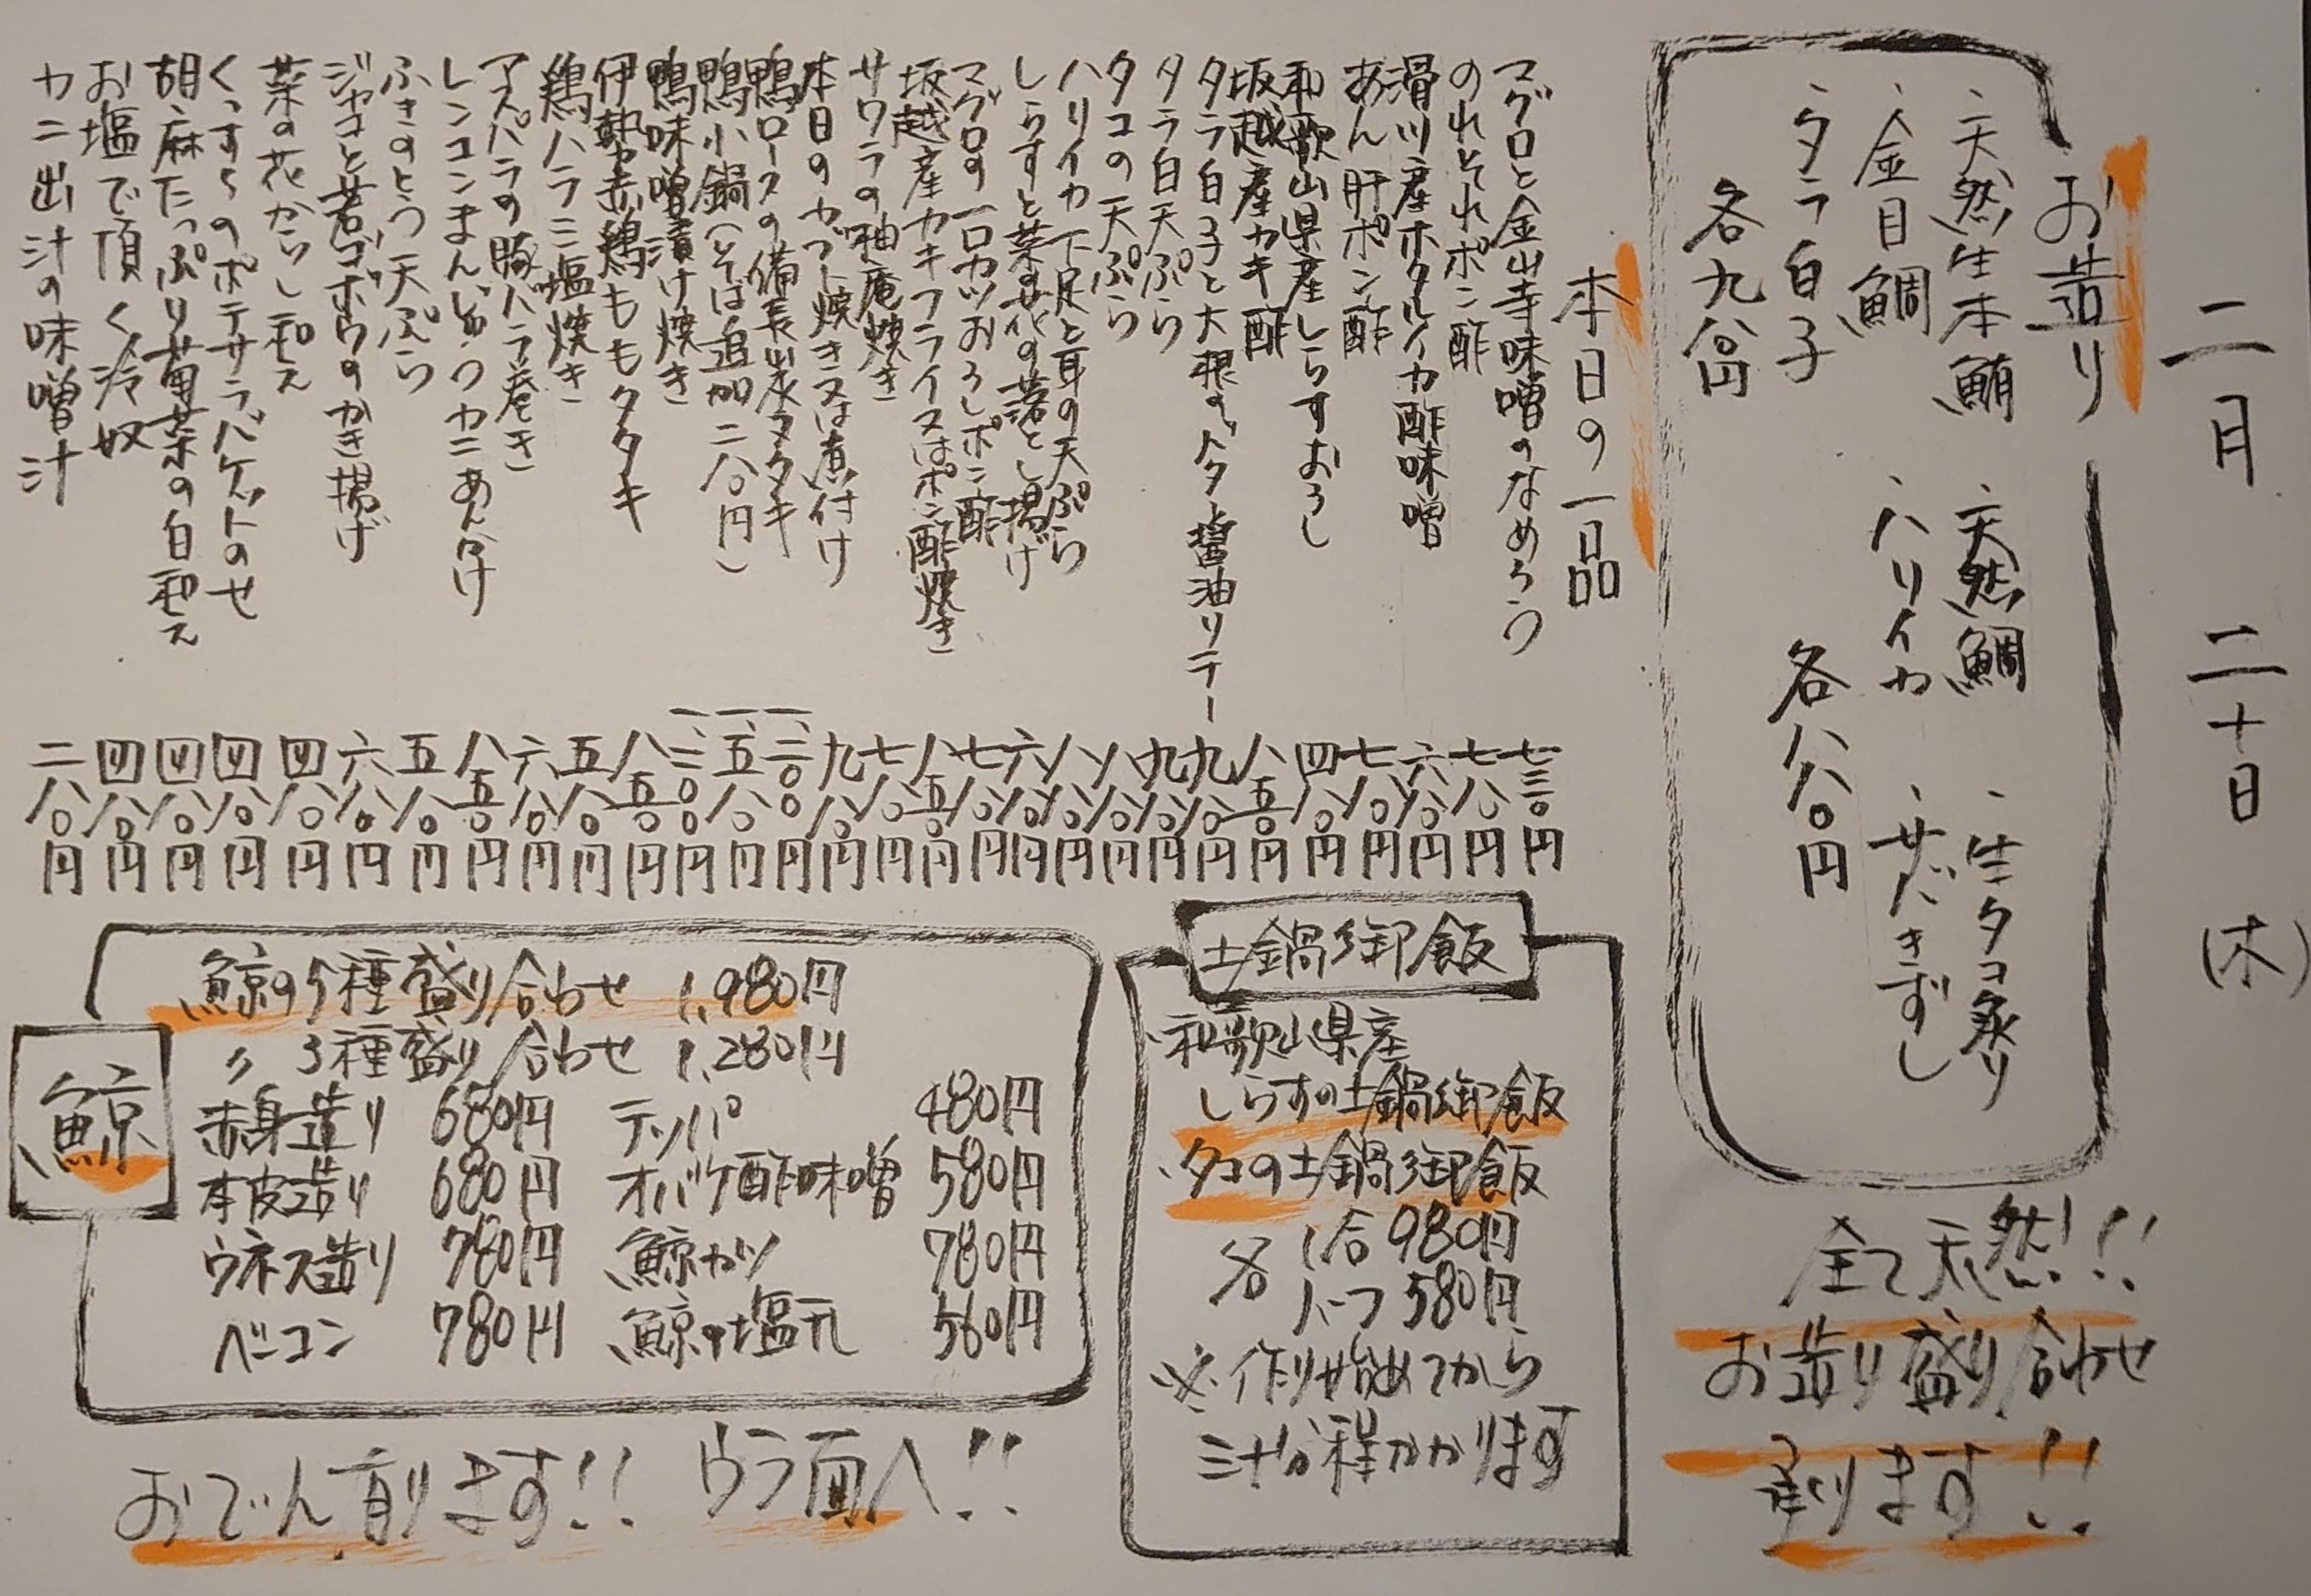 二月 二十日 (木)
お造り
、天然生本鮪 、天然鯛 、生タコ炙り
、金目鯛 、ハリイカ 、サバきずし
、タラ白子
各九八〇円 各八八〇円
全て天然!!
お造り盛り合わせ
承ります!!
本日の一品
マグロと金山寺味噌のなめろう 七三〇円
のれそれポン酢 七八〇円
滑川産ホタルイカ酢味噌 六八〇円
あん肝ポン酢 七八〇円
和歌山県産しらすおろし 四八〇円
坂越産カキ酢 八五〇円
タラ白子と大根のバター醤油ソテー 九八〇円
タラ白天ぷら 九八〇円
タコの天ぷら 八八〇円
ハリイカ下足と耳の天ぷら 八八〇円
しらすと菜の花の落とし揚げ 六八〇円
マグロの一口カツおろしポン酢 七八〇円
坂越産カキフライ又はポン酢焼き 八五〇円
サワラの柚庵焼き 七八〇円
本日のカブト焼き又は煮付け 九八〇円
鴨ロースの備長炭タタキ 一、二〇〇円
鴨小鍋(そば追加二八〇円) 一、五八〇円
鴨味噌漬け焼き 一、三〇〇円
伊勢赤鶏ももタタキ 八五〇円
鶏ハラミ塩焼き 五八〇円
アスパラの豚バラ巻き 六八〇円
レンコンまんじゅうカニあんかけ 八五〇円
ふきのとう天ぷら 五八〇円
ジャコと若ゴボウのかき揚げ 六八〇円
菜の花からし和え 四八〇円
くっすくのポテサラバゲットのせ 四八〇円
胡麻たっぷり菊菜の白和え 四八〇円
お塩で頂く冷奴 四八〇円
カニ出汁の味噌汁 二八〇円
土鍋御飯
、和歌山県産
しらすの土鍋御飯
、タコの土鍋御飯
各 1合 980円
ハーフ 580円
※作り始めてから
三十分程かかります
鯨
鯨の5種盛り合わせ 1,980円
〃 3種盛り合わせ 1,280円
赤身造り 680円 テッパ 480円
本皮造り 680円 オバケ酢味噌 580円
ウネス造り 780円 鯨カツ 780円
ベーコン 780円 鯨の塩元 560円
おでん有ります!! ウラ面へ!!